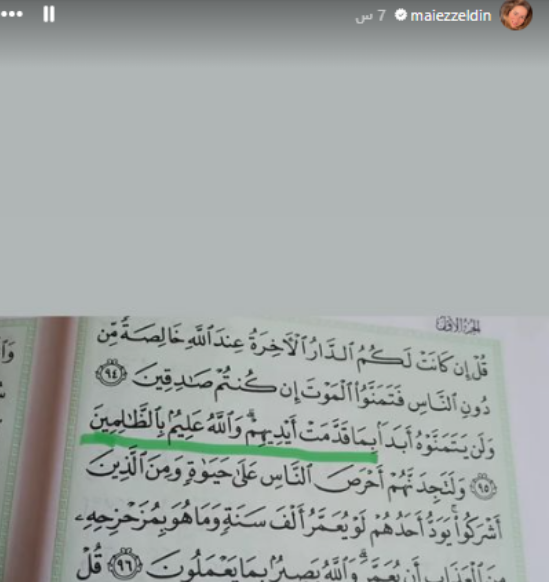 maiezzeldin 7 س
الجزء الأول
قُلْ إِن كَانَتْ لَكُمُ الدَّارُ الْآخِرَةُ عِندَ اللَّهِ خَالِصَةً مِّن
دُونِ النَّاسِ فَتَمَنَّوُا الْمَوْتَ إِن كُنتُمْ صَادِقِينَ ﴿٩٤﴾
وَلَن يَتَمَنَّوْهُ أَبَدًا بِمَا قَدَّمَتْ أَيْدِيهِمْ ۗ وَاللَّهُ عَلِيمٌ بِالظَّالِمِينَ
﴿٩٥﴾ وَلَتَجِدَنَّهُمْ أَحْرَصَ النَّاسِ عَلَىٰ حَيَوٰةٍ وَمِنَ الَّذِينَ
أَشْرَكُوا ۚ يَوَدُّ أَحَدُهُمْ لَوْ يُعَمَّرُ أَلْفَ سَنَةٍ وَمَا هُوَ بِمُزَحْزِحِهِ
مِنَ الْعَذَابِ أَن يُعَمَّرَ ۗ وَاللَّهُ بَصِيرٌ بِمَا يَعْمَلُونَ ﴿٩٦﴾ قُلْ